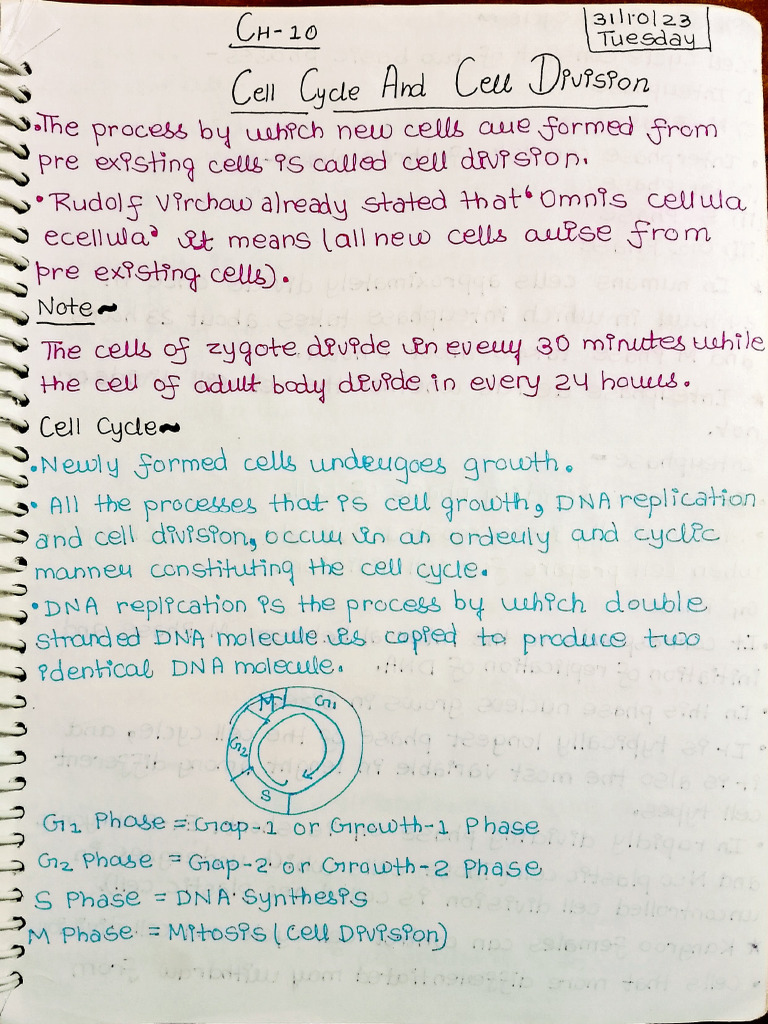 CH-10
31/10/23
Tuesday
Cell Cycle And Cell Division
•The process by which new cells are formed from
pre existing cells is called cell division.
•Rudolf Virchow already stated that 'Omnis cellula
ecellula' it means (all new cells arise from
pre existing cells).
Note~
The cells of zygote divide in every 30 minutes while
the cell of adult body divide in every 24 hours.
Cell Cycle~
•Newly formed cells undergoes growth.
• All the processes that is cell growth, DNA replication
and cell division, occur in an orderly and cyclic
manner constituting the cell cycle.
•DNA replication is the process by which double
stranded DNA molecule is copied to produce two
identical DNA molecule.
M G1
G2
S
G1 Phase = Gap-1 or Growth-1 Phase
G2 Phase = Gap-2 or Growth-2 Phase
S Phase = DNA Synthesis
M Phase = Mitosis (Cell Division)